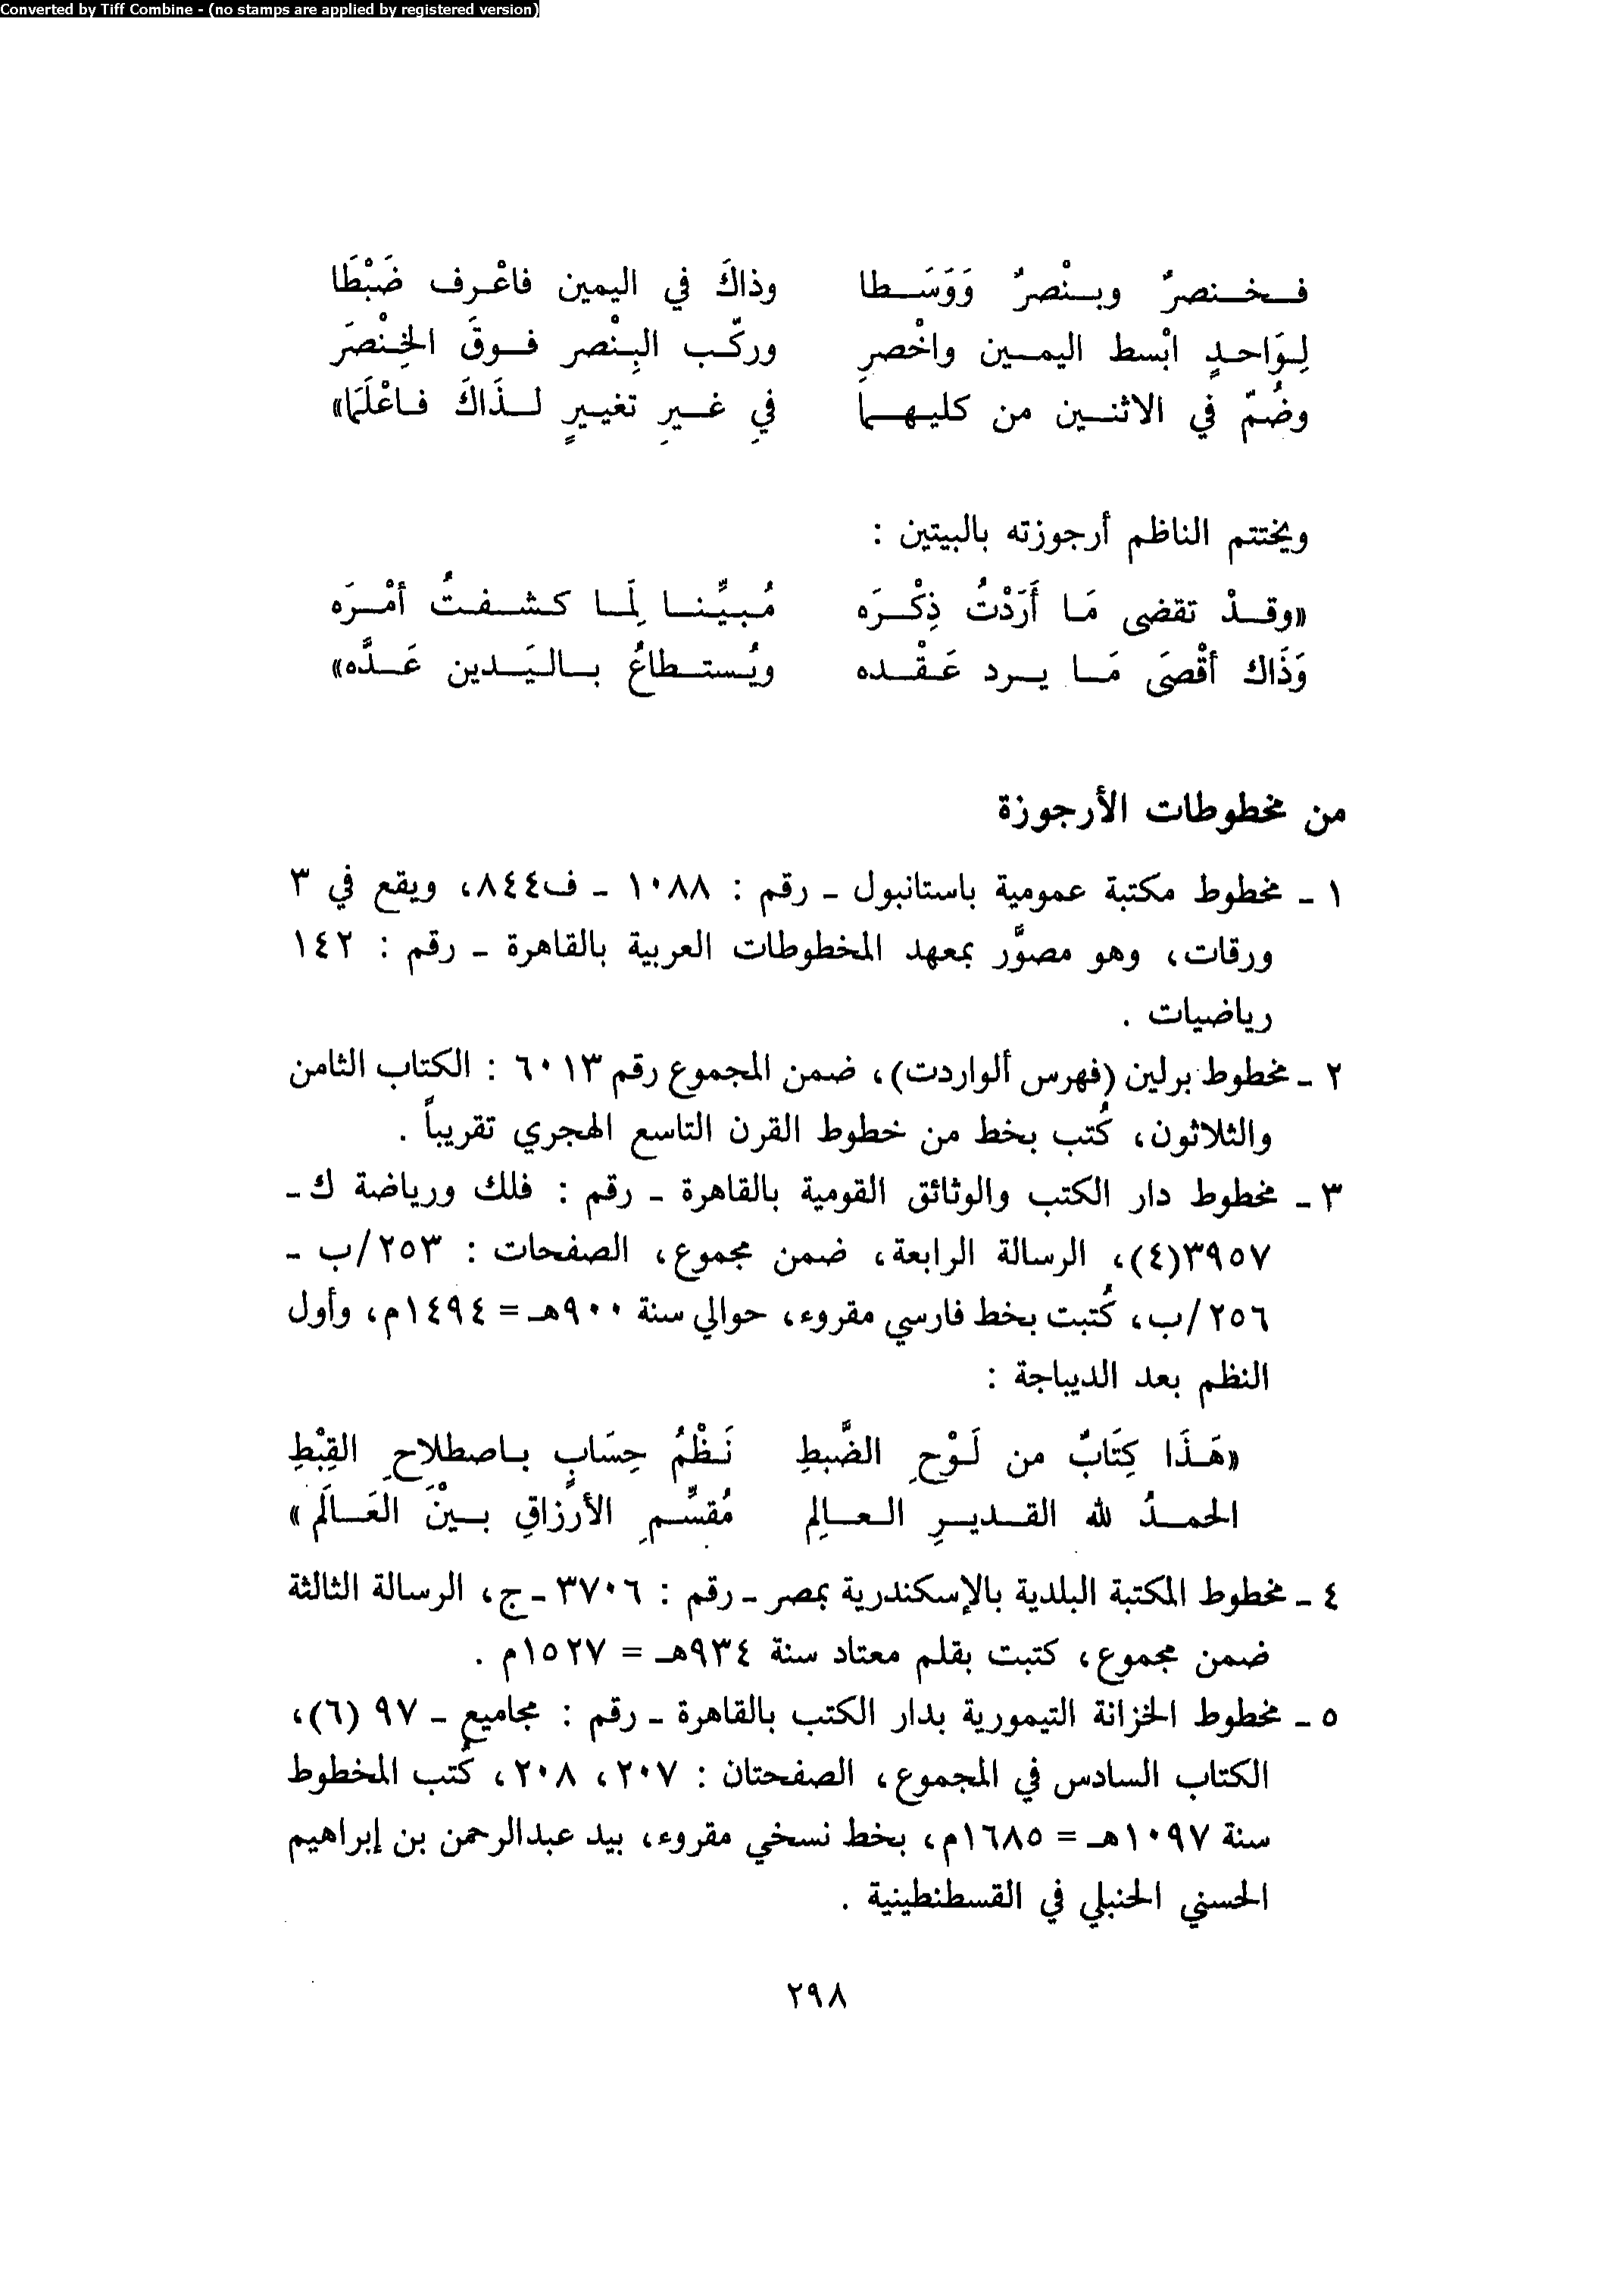 Converted by Tiff Combine - (no stamps are applied by registered version)
فـخـنصرٌ وبـنْصرٌ وَوَسَـطا وذاكَ في اليمين فاعْرف ضَبْطَا
لِوَاحدٍ ابْسط اليمـين واخْصرِ وركّب البِنْصر فوقَ الخِنْصَرَ
وضُمّ في الاثنـين من كليهـما فيِ غـيرِ تغييرٍ لـذَاكَ فاعْلَمَا»
ويختتم الناظم أرجوزته بالبيتين :
«وقـدْ تقضى مَا أَرَدْتُ ذِكْـرَه مُبيِّنـا لِمَـا كشـفتُ أمْرَه
وَذَاك أقْصَى مَـا يـرد عَـقْـده ويُستـطاعُ بـاليَدين عَـدَّه»
من مخطوطات الأرجوزة
١ ـ مخطوط مكتبة عمومية باستانبول ـ رقم : ١٠٨٨ ـ ف٨٤٤، ويقع في ٣
ورقات، وهو مصوَّر بمعهد المخطوطات العربية بالقاهرة ـ رقم : ١٤٢
رياضيات .
٢ ـ مخطوط برلين (فهرس ألواردت)، ضمن المجموع رقم ٦٠١٣ : الكتاب الثامن
والثلاثون، كُتب بخط من خطوط القرن التاسع الهجري تقريباً .
٣ ـ مخطوط دار الكتب والوثائق القومية بالقاهرة ـ رقم : فلك ورياضة ك ـ
٣٩٥٧(٤)، الرسالة الرابعة، ضمن مجموع، الصفحات : ٢٥٣/ب ـ
٢٥٦/ب، كُتبت بخط فارسي مقروء، حوالي سنة ٩٠٠هـ = ١٤٩٤م، وأول
النظم بعد الديباجة :
«هَـذَا كِتَابٌ من لَـوْحِ الضَّبطِ نَـظْمُ حِسَابٍ بـاصطلاحِ القِبْطِ
الحمـدُ لله القـديـرِ العـالِم مُقسِّمِ الأرزاقِ بـينْ العَـالَم»
٤ ـ مخطوط المكتبة البلدية بالإسكندرية بمصر ـ رقم : ٣٧٠٦ ـ ج، الرسالة الثالثة
ضمن مجموع، كتبت بقلم معتاد سنة ٩٣٤هـ = ١٥٢٧م .
٥ ـ مخطوط الخزانة التيمورية بدار الكتب بالقاهرة ـ رقم : مجاميع ـ ٩٧ (٦)،
الكتاب السادس في المجموع، الصفحتان : ٢٠٧، ٢٠٨، كُتب المخطوط
سنة ١٠٩٧هـ = ١٦٨٥م، بخط نسخي مقروء، بيد عبدالرحمن بن إبراهيم
الحسني الحنبلي في القسطنطينية .
٢٩٨